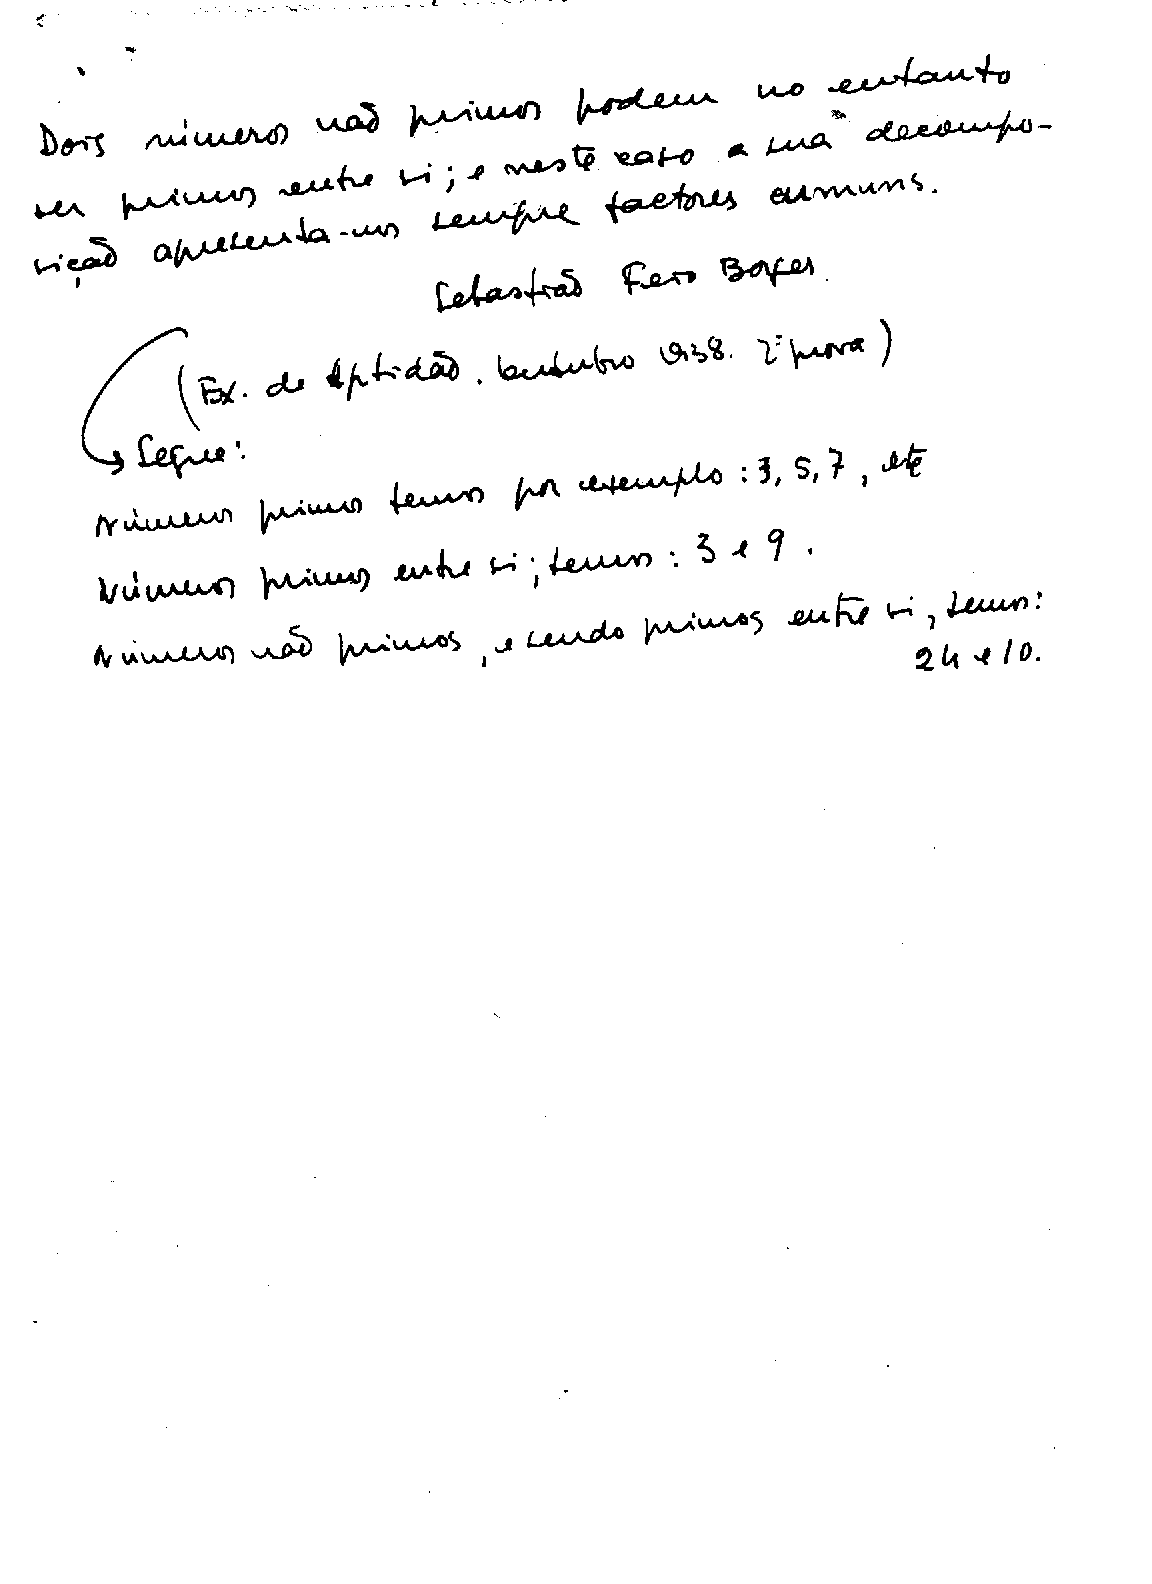 Dois números não primos podem no entanto
ser primos entre si; e neste caso a sua decompo-
sição apresenta-nos sempre factores comuns.
Sebastião Fero Borges.
(Ex. de Aptidão. Outubro 1938. 2ª prova)
Segue:
Números primos temos por exemplo: 3, 5, 7, etc
Números primos entre si; temos: 3 e 9.
Números não primos, e sendo primos entre si, temos:
24 e 10.